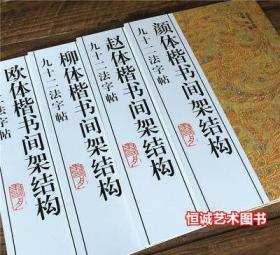 颜体楷书间架结构
九十二法字帖
赵体楷书间架结构
九十二法字帖
柳体楷书间架结构
九十二法字帖
欧体楷书间架结构
二法字帖
恒诚艺术图书